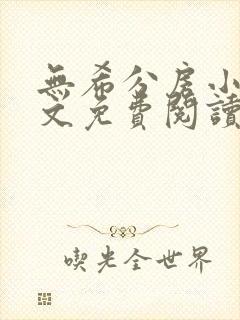 無希分房小
文免費閱讀
喫光全世界